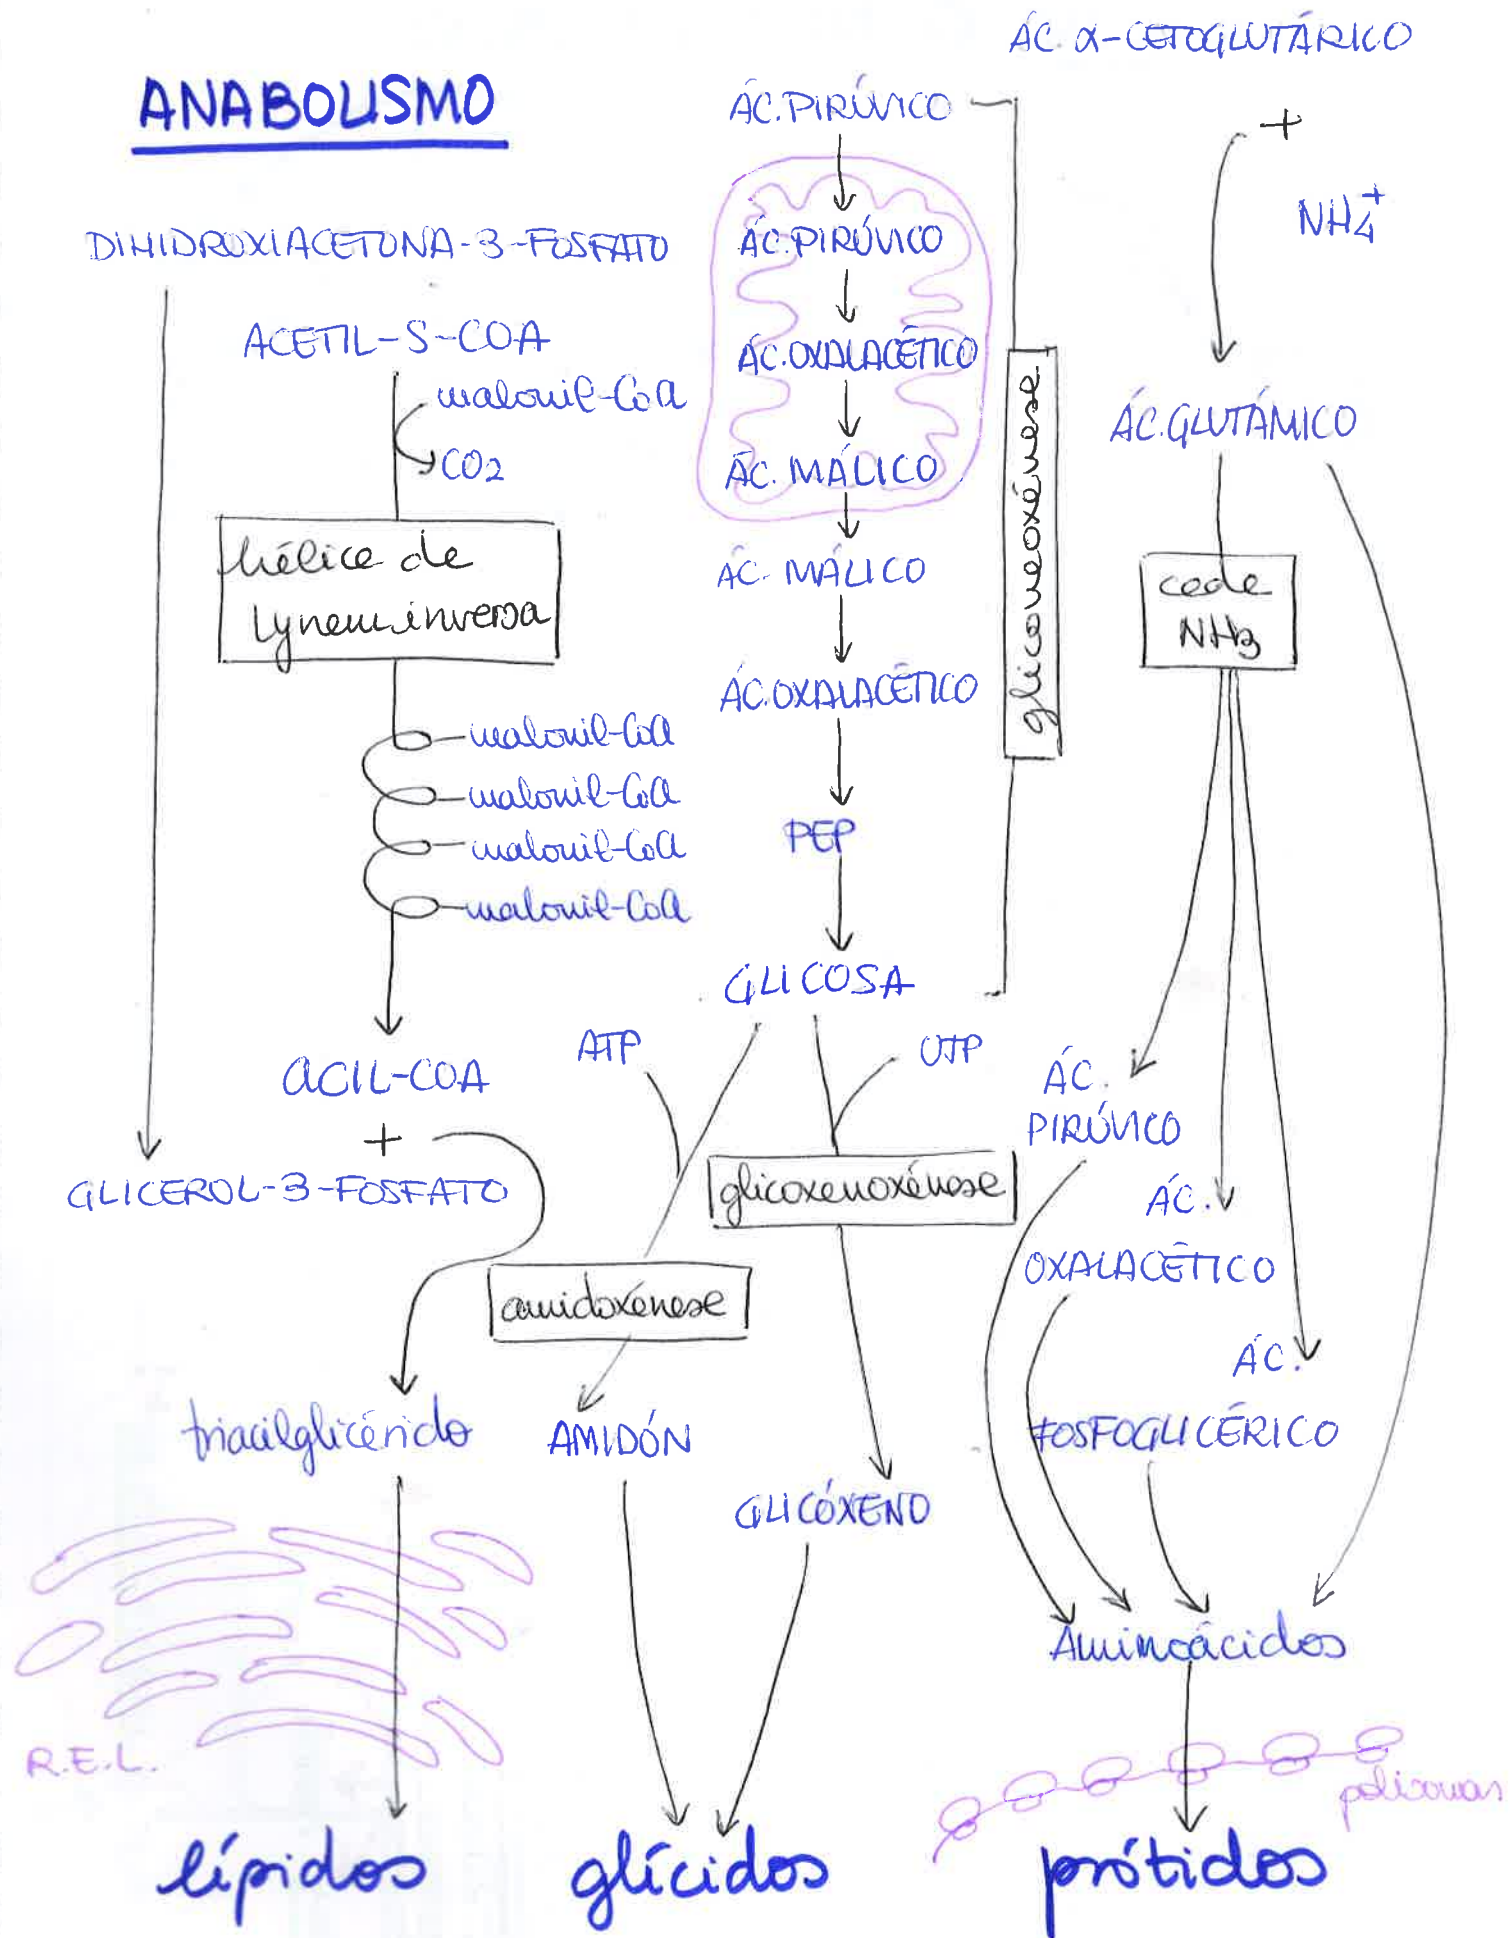 ANABOLISMO
DIHIDROXIACETONA-3-FOSFATO
ACETIL-S-COA
malonil-CoA
CO2
hélice de
Lynen inversa
malonil-CoA
malonil-CoA
malonil-CoA
malonil-CoA
ACIL-COA
+
GLICEROL-3-FOSFATO
triacilglicérido
R.E.L.
lípidos
ÁC. PIRÚVICO
ÁC. PIRÚVICO
ÁC. OXALACÉTICO
ÁC. MÁLICO
ÁC. MÁLICO
ÁC. OXALACÉTICO
PEP
GLICOSA
gliconeoxénese
ATP
UTP
glicoxenoxénese
amidoxénese
AMIDÓN
GLICÓXENO
glícidos
ÁC. α-CETOGLUTÁRICO
+
NH4+
ÁC. GLUTÁMICO
cede
NH3
ÁC.
PIRÚVICO
ÁC.
OXALACÉTICO
ÁC.
FOSFOGLICÉRICO
Aminoácidos
polisomas
prótidos